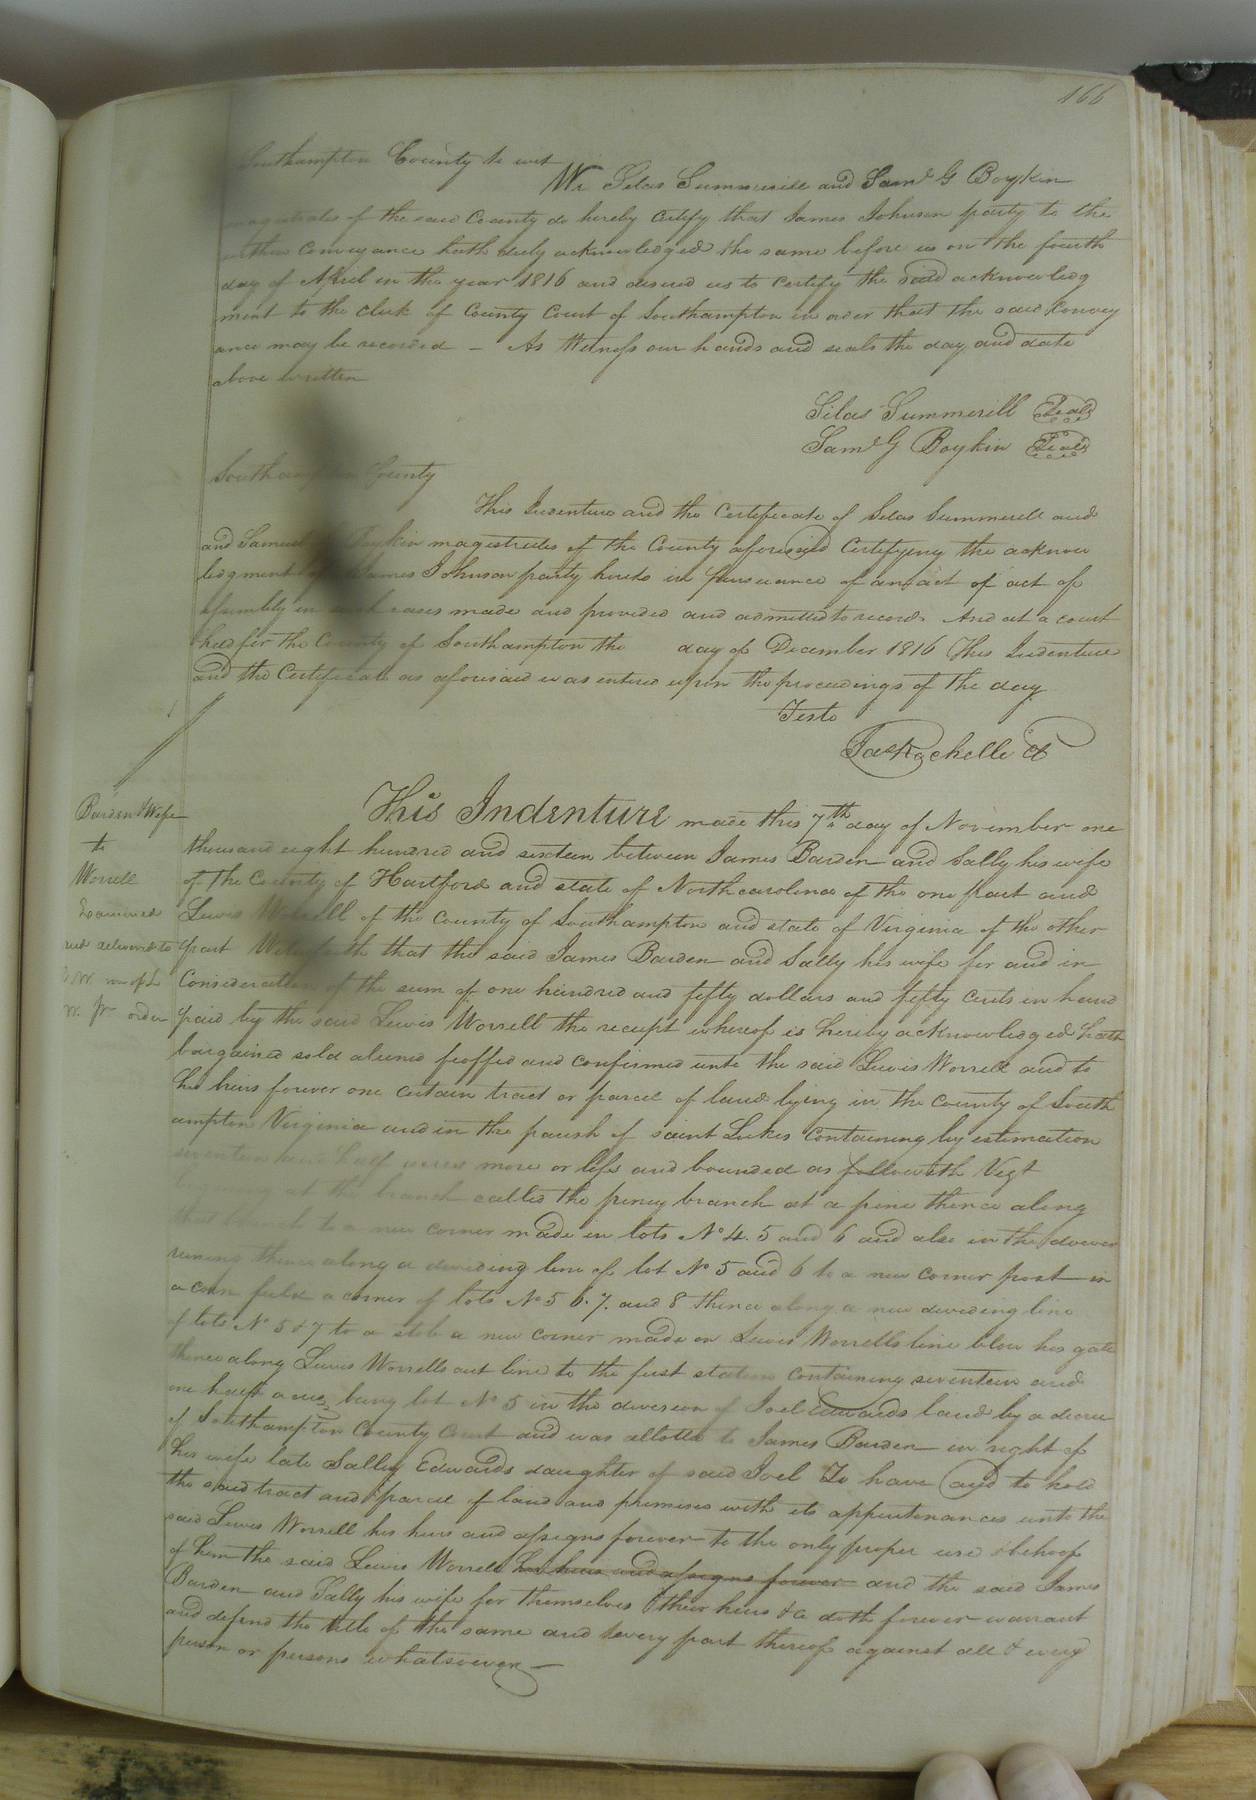 166
Southampton County to wit
We Silas Summerill and Saml G Boykin
magistrates of the said County do hereby certify that James Johnson party to the
within Conveyance hath duly acknowledged the same before us on the fourth
day of April in the year 1816 and desired us to certify the said acknowledg
ment to the clerk of County Court of Southampton in order that the said Convey
ance may be recorded – As Witness our hands and seals the day and date
above written
Silas Summerill Seal
Saml G Boykin Seal
Southampton County
This Indenture and the Certificate of Silas Summerill and
and Samuel G Boykin magistrates of the County aforesaid Certifying the acknow
ledgment of James Johnson party hereto in pursuance of an act of act of
assembly in such cases made and provided and admitted to record. And at a court
held for the County of Southampton the day of December 1816 This Indenture
and the Certificate as aforesaid was entered upon the proceedings of the day
Teste
Jas Rochelle Cl
Barden & Wife
to
Worrell
Examined
and delivered to
W.
W. Jr order
This Indenture made this 7th day of November one
thousand eight hundred and sixteen between James Barden and Sally his wife
of the County of Hartford and state of North carolina of the one part and
Lewis Worrell of the County of Southampton and state of Virginia of the other
part Witnesseth that the said James Barden and Sally his wife for and in
Consideration of the sum of one hundred and fifty dollars and fifty cents in hand
paid by the said Lewis Worrell the receipt whereof is hereby acknowledged hath
bargained sold aliened feoffed and confirmed unto the said Lewis Worrell and to
his heirs forever one certain tract or parcel of land lying in the county of South
ampton Virginia and in the parish of saint Lukes Containing by estimation
seventeen and half acres more or less and bounded as followeth Vizt
begining at the branch called the piney branch at a pine thence along
that branch to a new corner made in lots No 4. 5 and 6 and also in the dower
runing thence along a deviding line of lot No 5 and 6 to a new corner post in
a corn field a corner of lots No 5 6. 7. and 8 thence along a new deviding line
of lots No 5 & 7 to a stob a new corner made on Lewis Worrells line blow his gate
thence along Lewis Worrells out line to the first station containing seventeen and
one half acres, being lot No 5 in the devision of Joel Edwards land by a decree
of Southampton County Court and was allotted to James Barden in right of
his wife late Sally Edwards daughter of said Joel To have and to hold
the said tract and parcel of land and premises with its appurtenances unto the
said Lewis Worrell his heirs and assigns forever to the only proper use & behoof
of him the said Lewis Worrell his heirs and assigns forever and the said James
Barden and Sally his wife for themselves & their heirs &c doth forever warrant
and defend the title of the same and every part thereof against all & every
person or persons whatsoever –